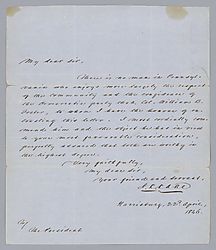 My dear Sir,
There is no man in Pennsyl-
vania who enjoys more largely the respect
of the Community and the confidence of
the Democratic party than Col. William B.
Foster, to whom I have the honor of en-
trusting this letter. I most cordially com-
mend him and the object he has in view
to your most favorable consideration,
perfectly assured that both are worthy in
the highest degree.
Very faithfully,
My dear Sir,
Your friend and servant,
Harrisburg, 22d April,
1846.
The President